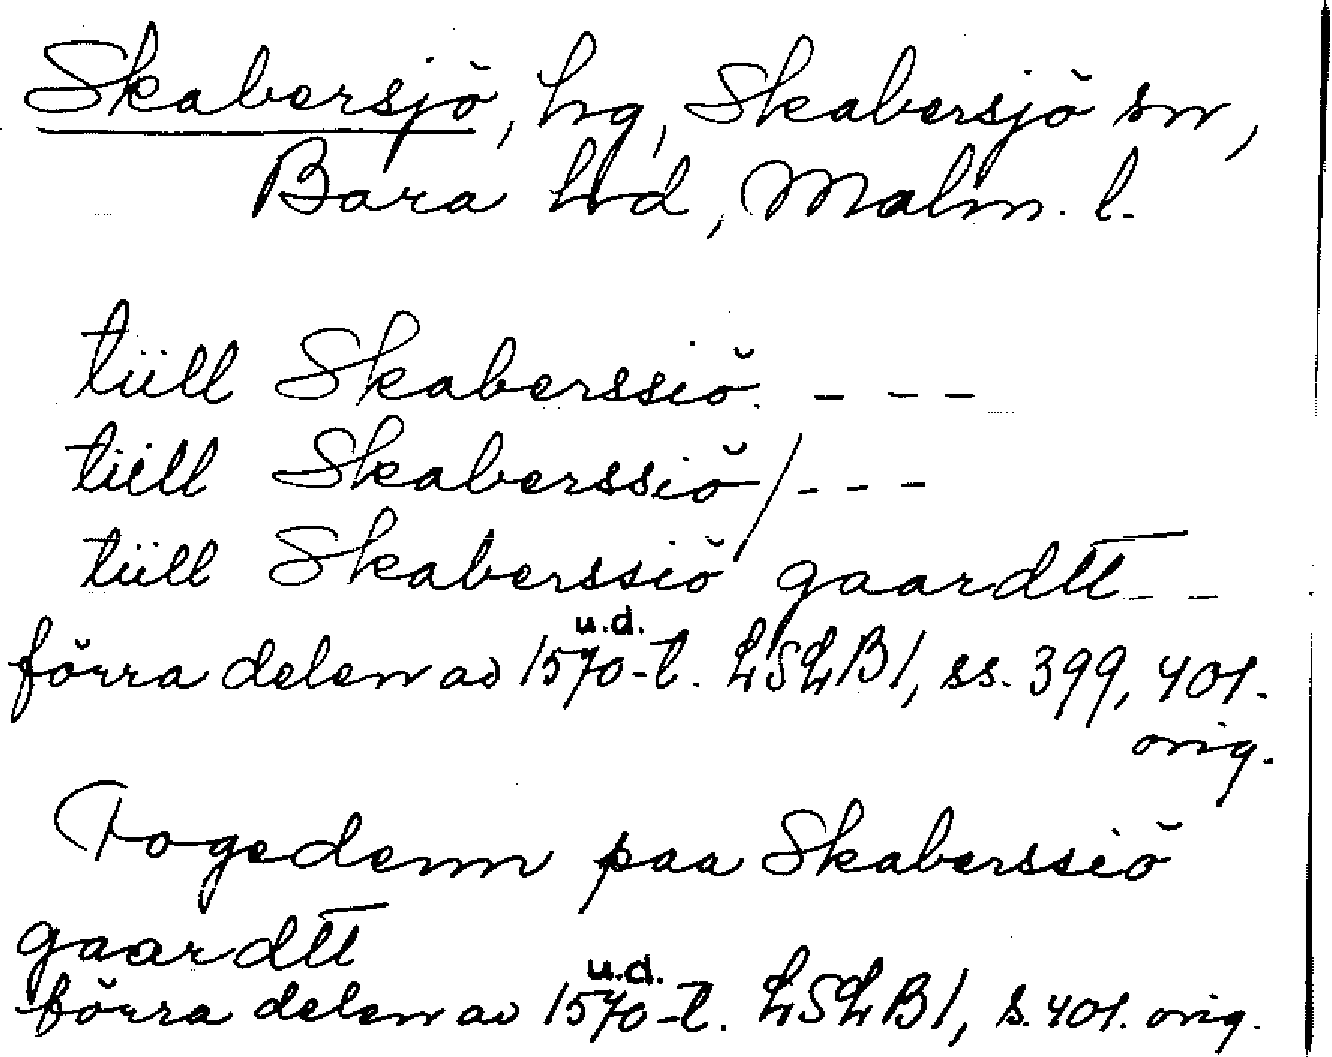 Skabersjö, hg, Skabersjö sn,
Bara hd, Malm. l.
tiill Skaberssiö. - - -
tiill Skaberssiö/- - -
tiill Skaberssiö gaardtt - -
u.d.
förra delen av 1570-t. LSLB1, ss. 399, 401.
orig.
Fogedenn paa Skaberssiö
gaardtt
u.d.
förra delen av 1570-t. LSLB1, s. 401. orig.